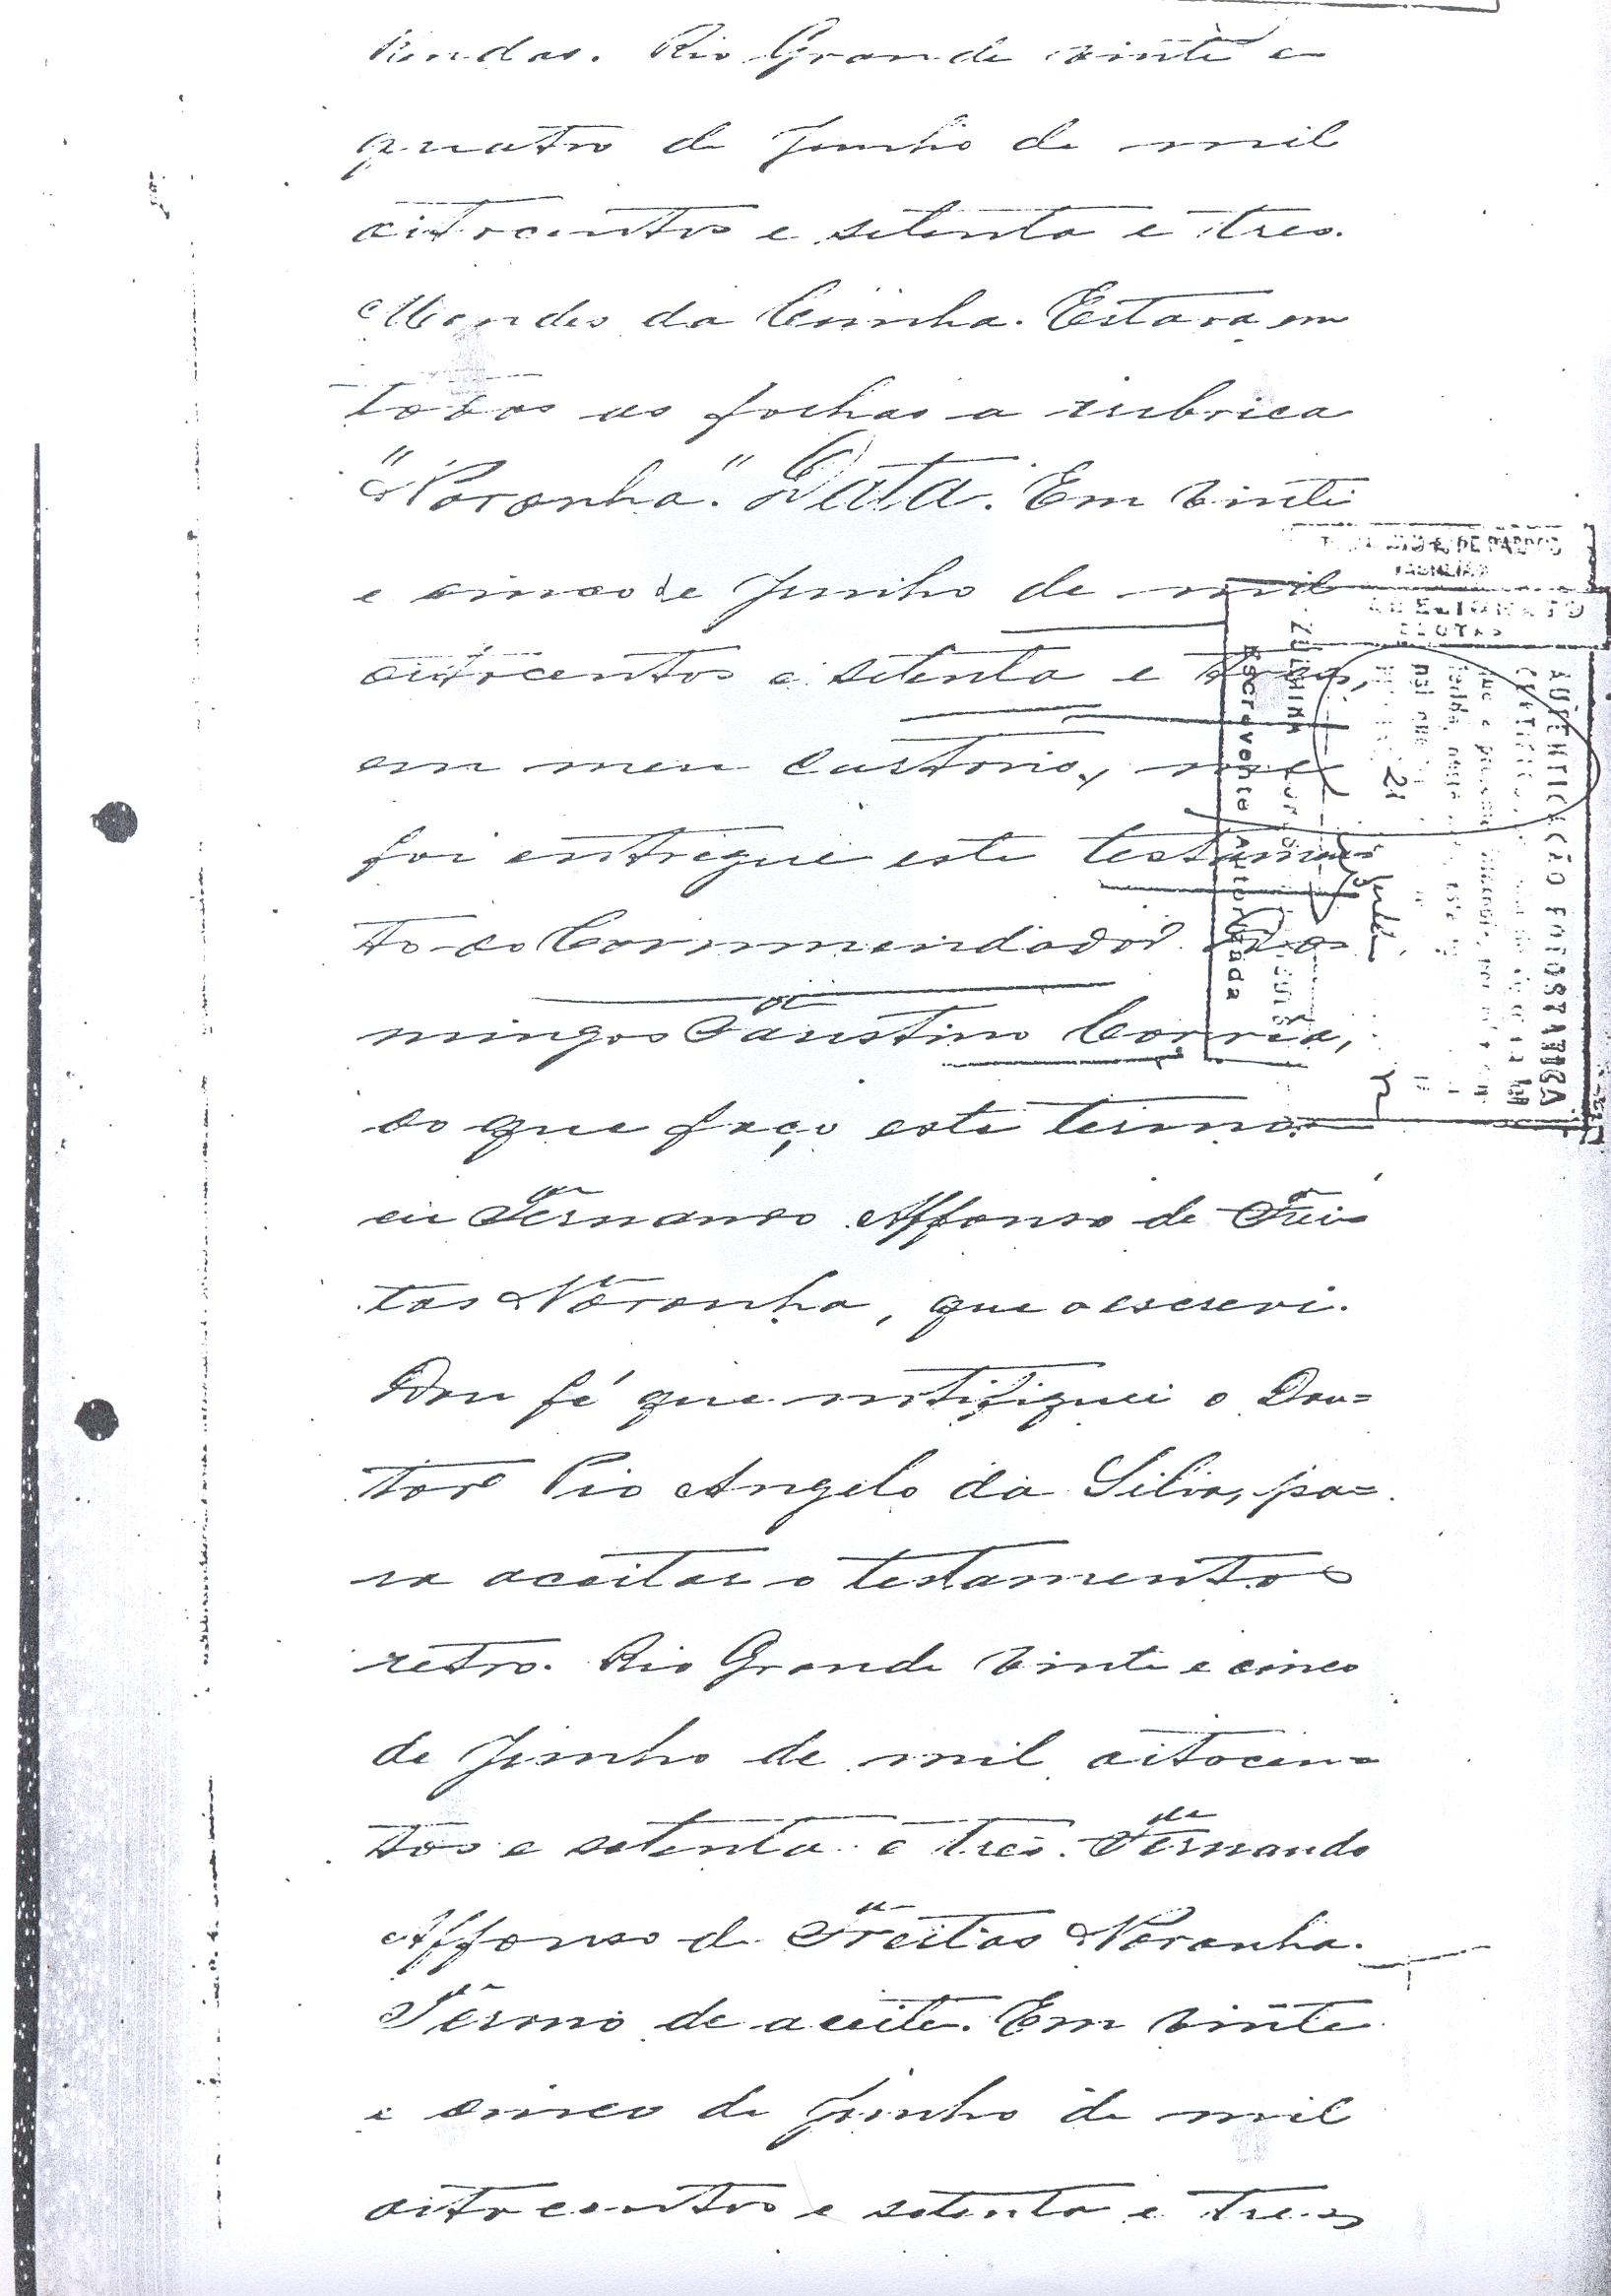 Rendas. Rio Grande vinte e
quatro de Junho de mil
oitocentos e setenta e tres.
Mendes da Cunha. Estava em
todas as folhas a rubrica
"Noronha". Data. Em vinte
e cinco de Junho de mil
oitocentos e setenta e tres,
em meu cartorio, me
foi entregue este testamen
to do Commendador Do
mingos Faustino Corrêa,
do que faço este termo
eu Fernando Affonso de Frei
tas Noronha, que o escrevi.
Dou fé que notifiquei o Dou=
tor Pio Angelo da Silva, pa=
ra aceitar o testamento
retro. Rio Grande vinte e cinco
de Junho de mil oitocen=
tos e setenta e tres. Fernando
Affonso de Freitas Noronha.
Termo de aceite. Em vinte
e cinco de Junho de mil
oitocentos e setenta e tres
AUTENTICAÇÃO FOTOSTATICA
Escrevente Autorizada